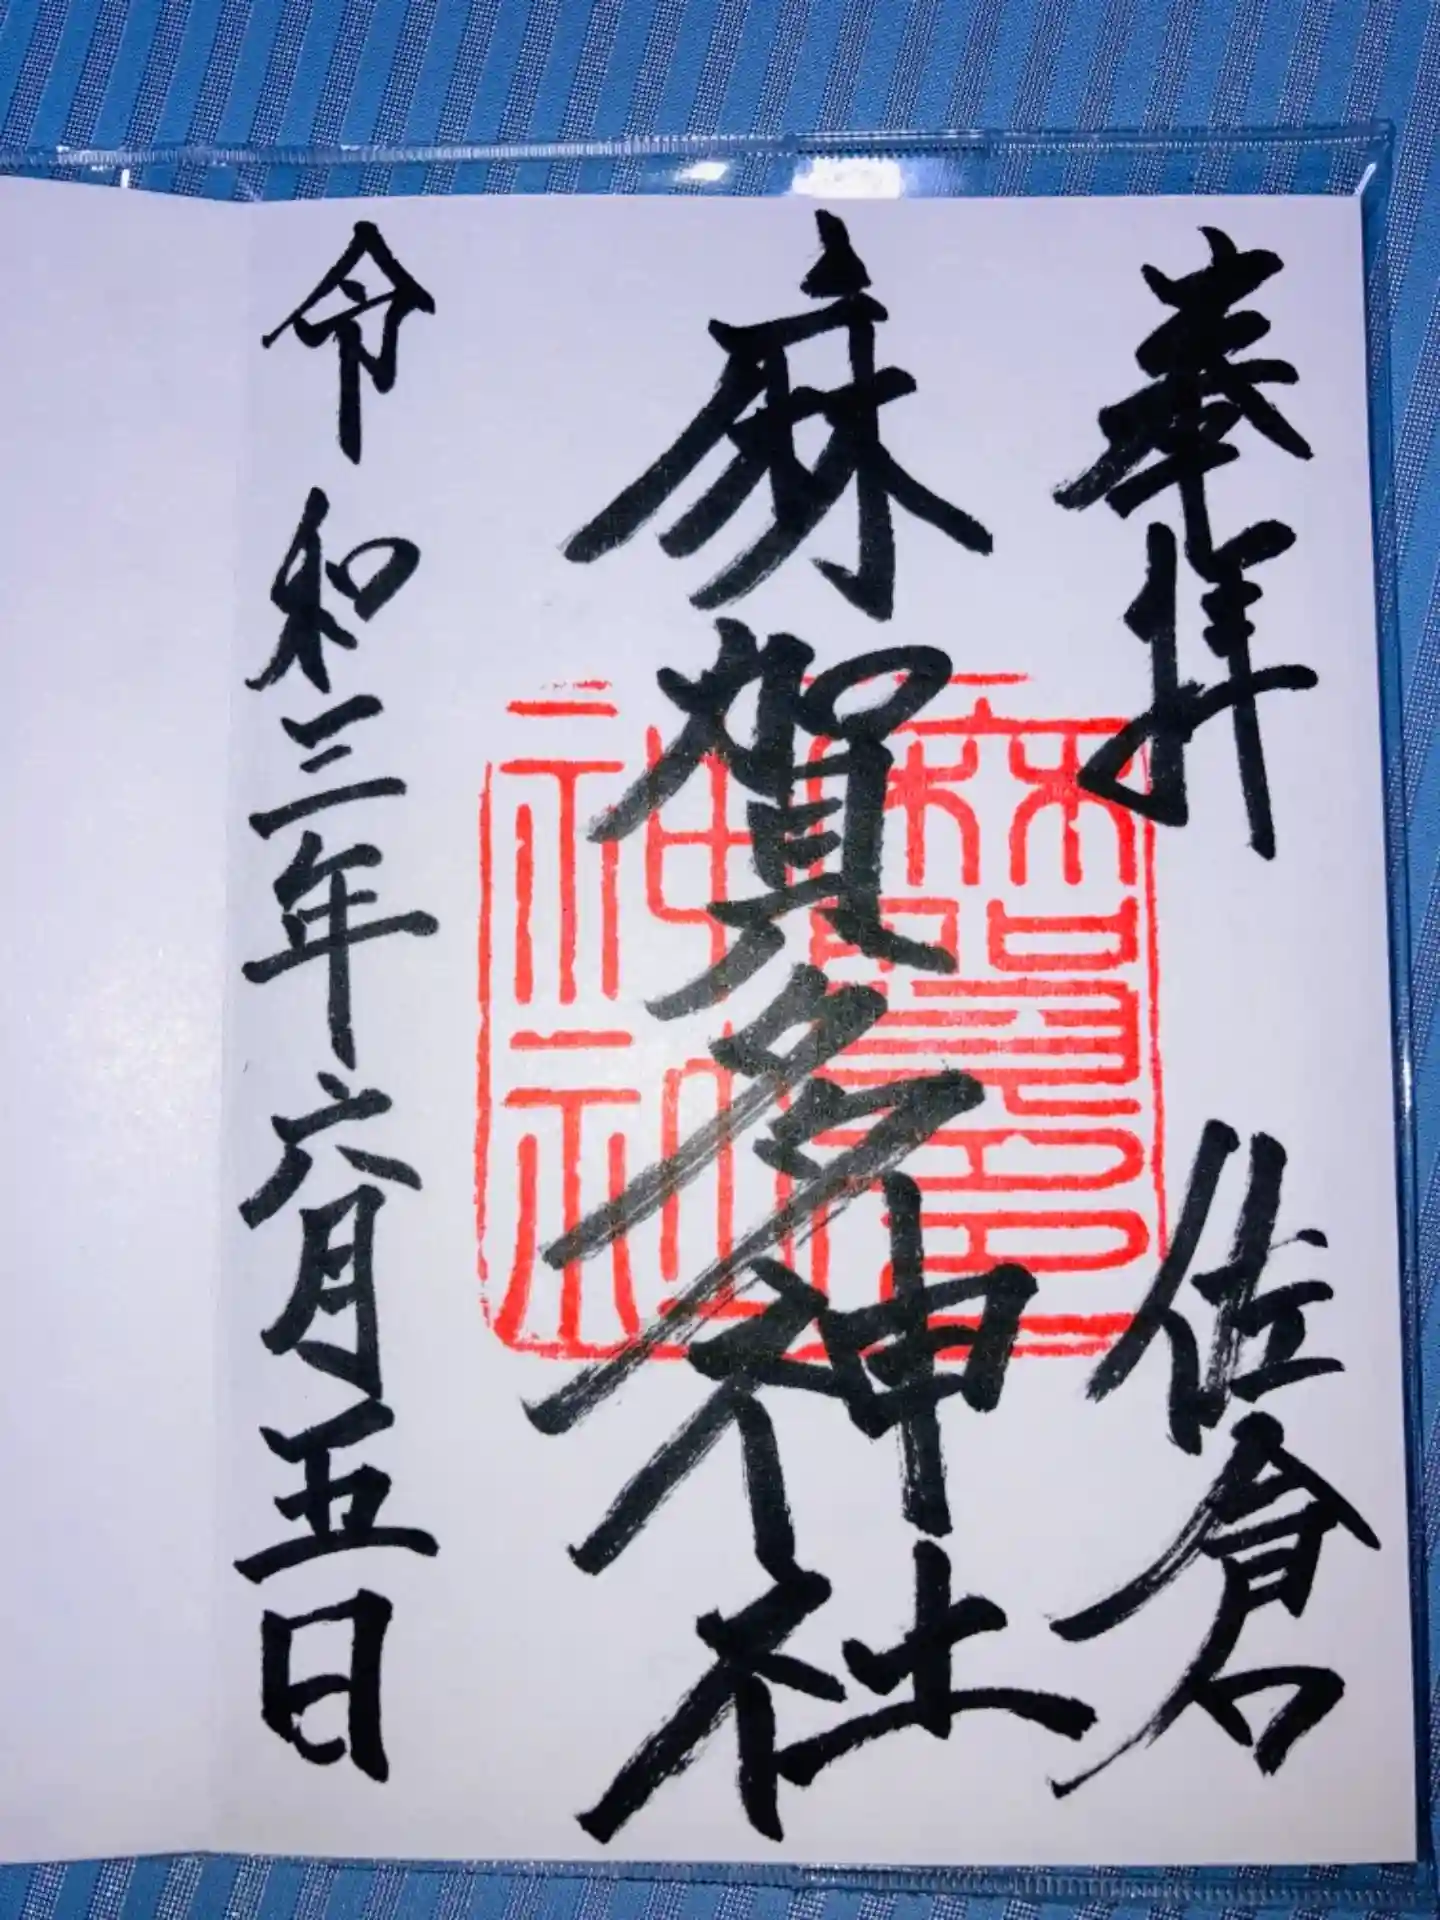 奉拝 佐倉
麻賀多神社
麻賀多
神社
令和三年六月五日